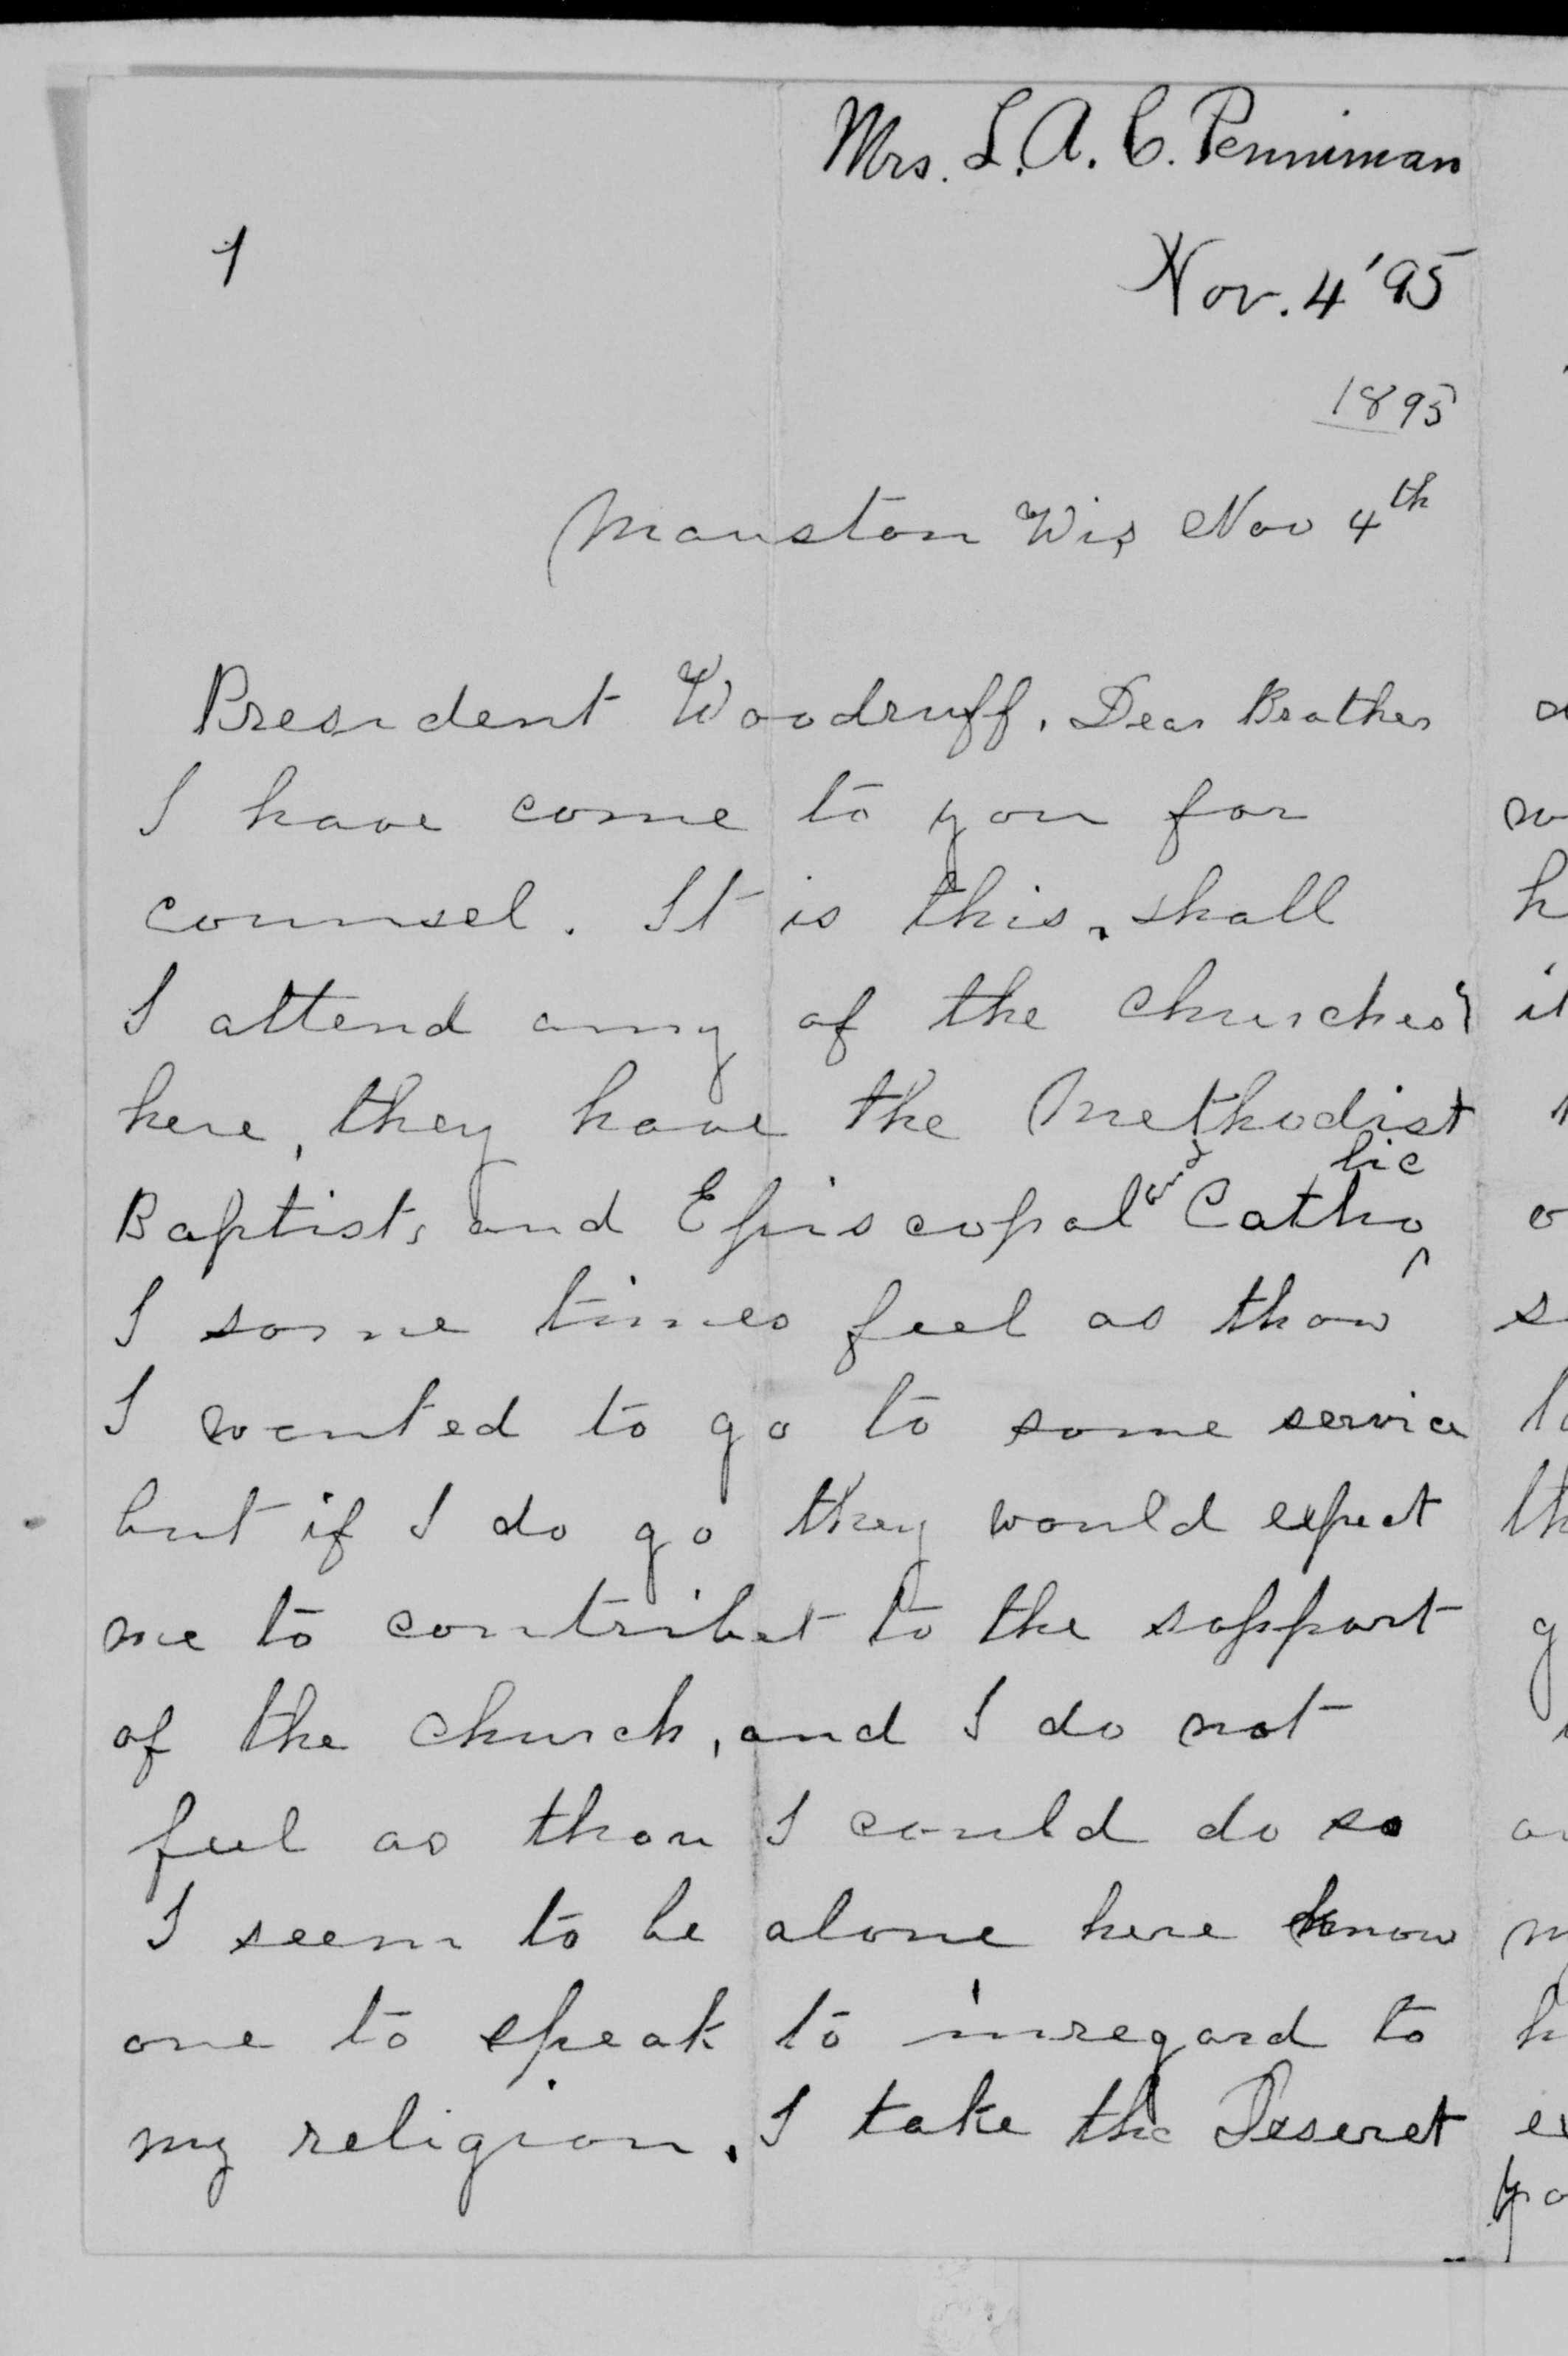 Mrs. L. A. C. Penniman
1
Nov. 4 '95
1895
Mauston Wis Nov 4th
President Woodruff. Dear Brother
I have come to you for
counsel. It is this, shall
I attend any of the churches
here, they have the Methodist
Baptist, and Episcopal and Catholic
I some times feel as thou
I wanted to go to some service
but if I do go they would expect
me to contribet to the support
of the church, and I do not
feel as thou I could do so
I seem to be alone here know
one to speak to inregard to
my religion. I take the Deseret